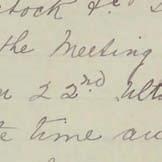 stock &c
the Meeting
22nd. Ult
time an